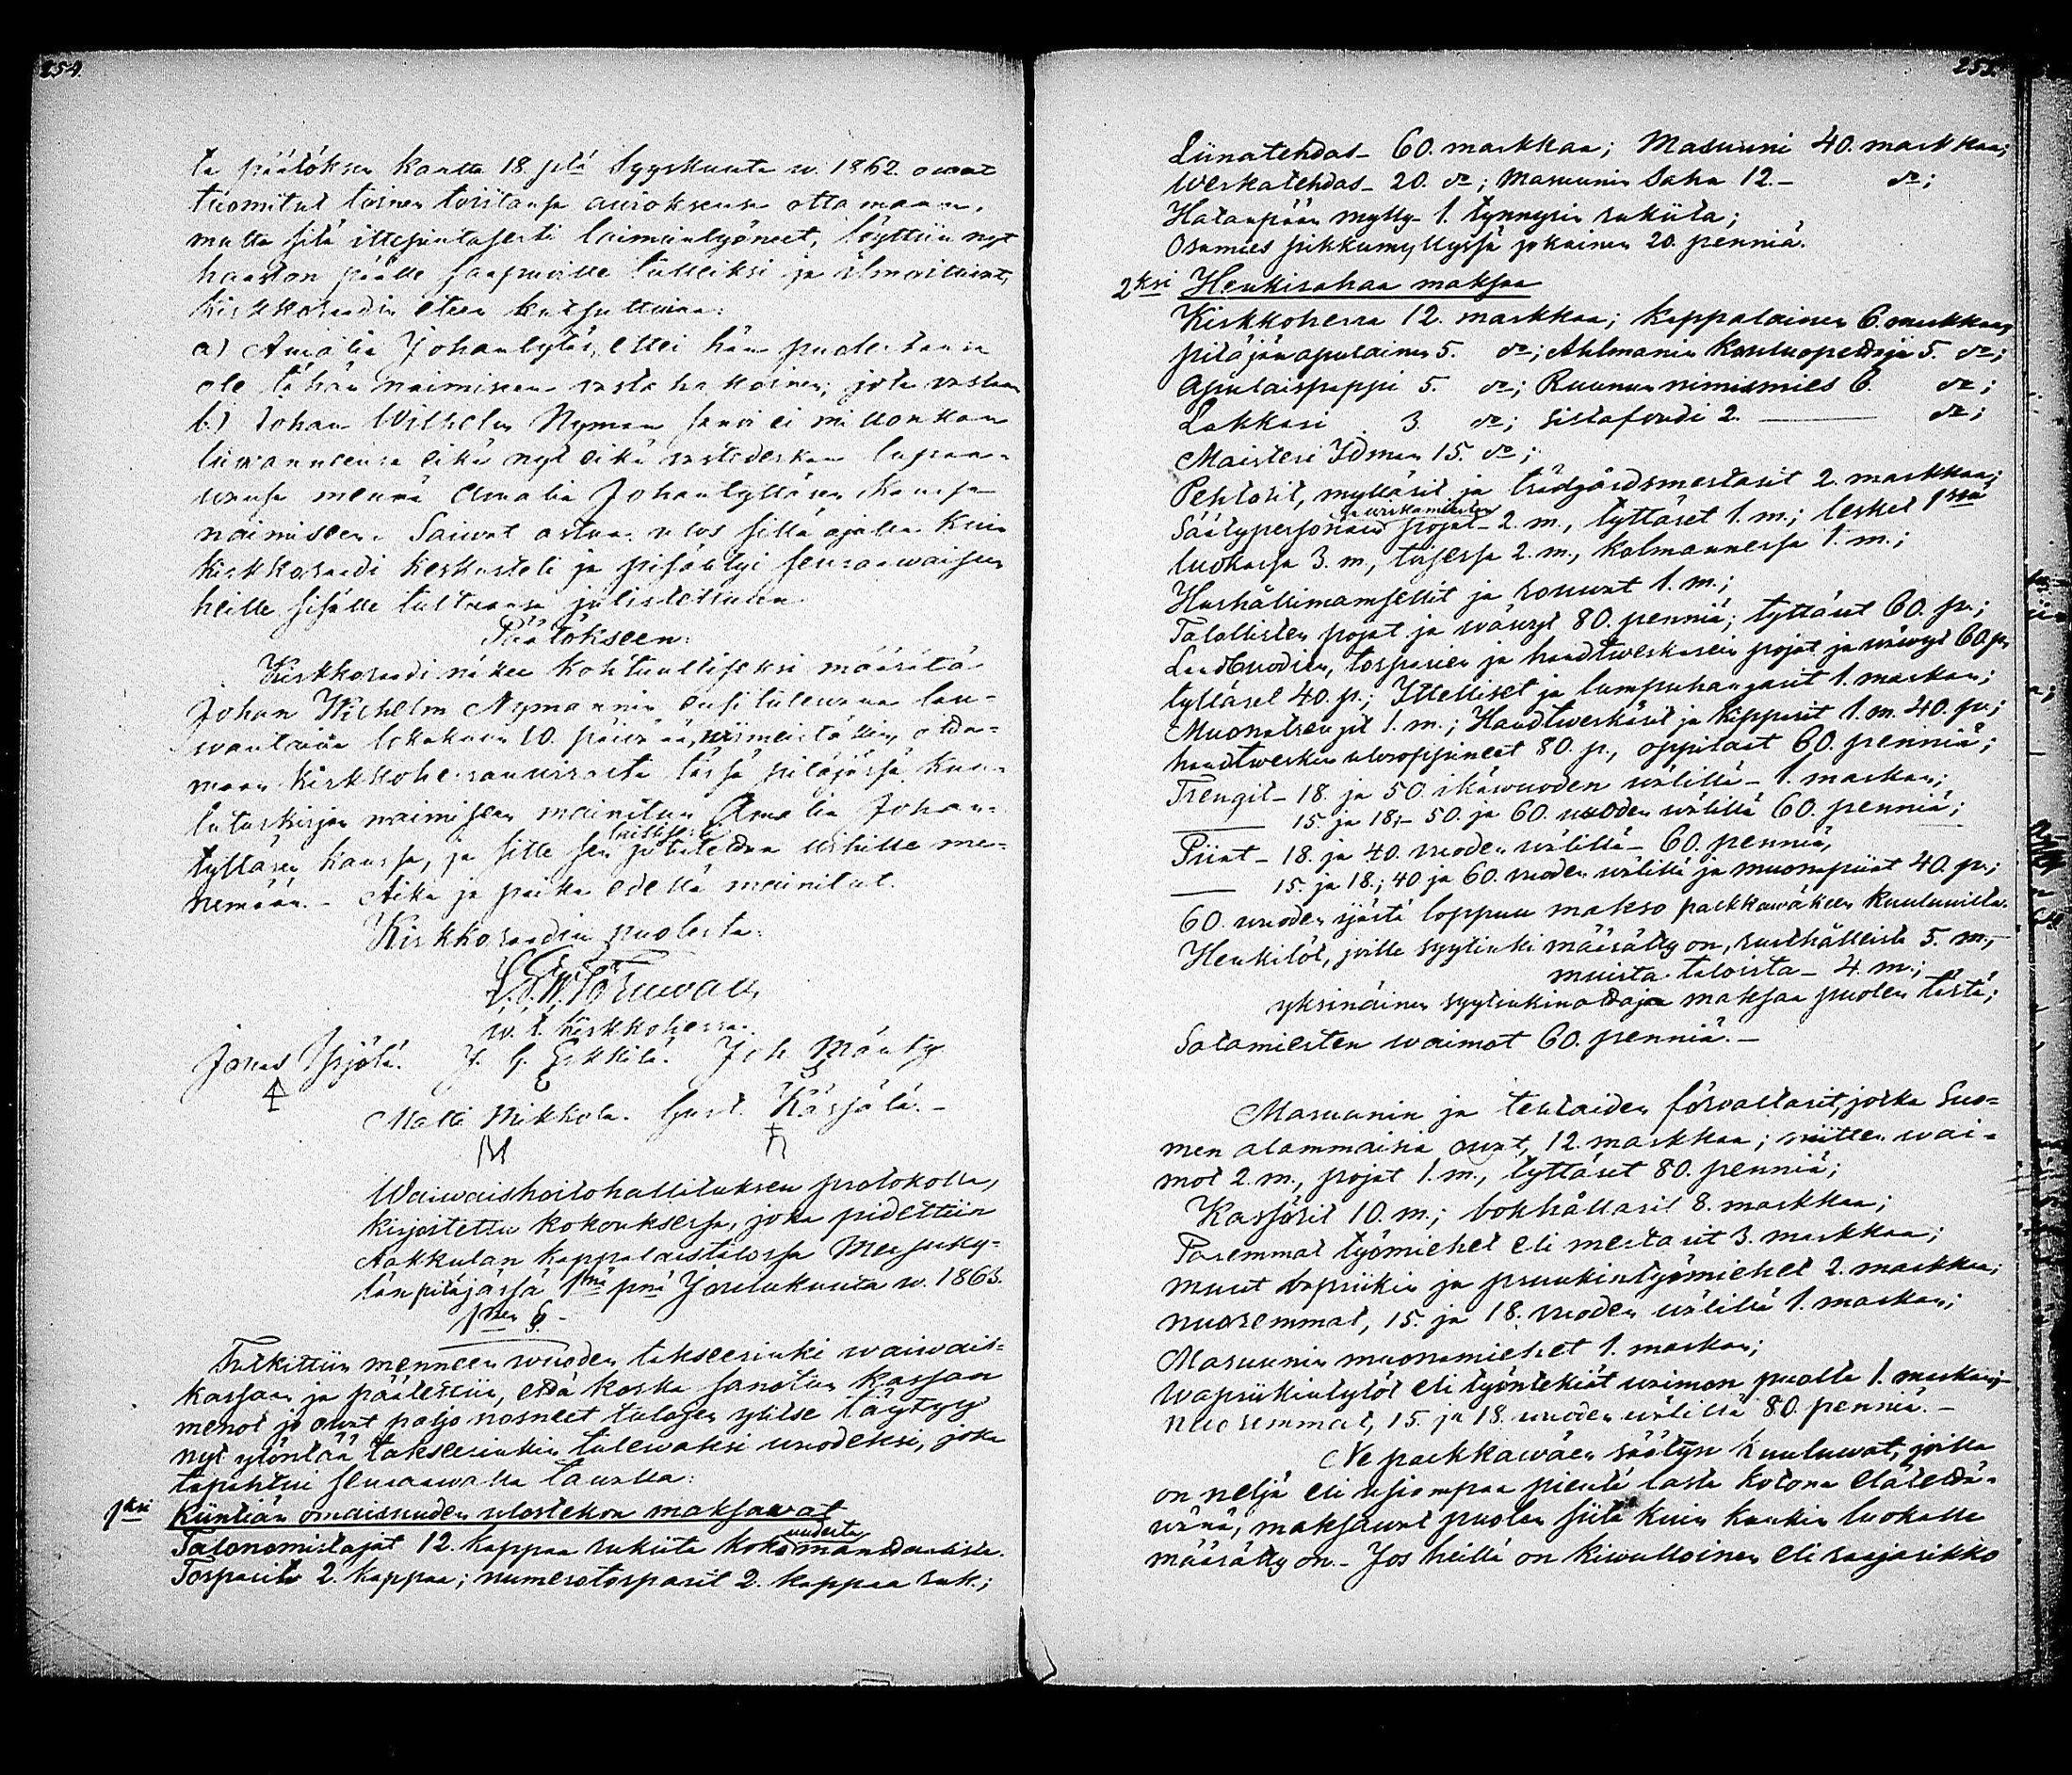 254.
ta päätöksen kautta 18. ptä Syyskuuta w. 1862. owat
tuomitut toinen toistansa awioksensa ottamaan,
mutta sitä ittepintasesti laiminlyöneet, löyttiin nyt
haaston päälle saapuville tulleiksi ja ilmoittiwat,
kirkkoraadin eteen kutsuttuina:
a) Amalia Johantytär, ettei hän puolestansa
ole tähän naimiseen vastahakoinen; jota vastaan
b.) Johan Wilhelm Nyman sanoi ei millonkaan
luwanneensa eikä nyt eikä vastedeskään lupaa-
wansa mennä Amalia Johantyttären kanssa
naimiseen. Saiwat astua ulos sillä ajalla kuin
kirkkoraadi keskusteli ja pisäntyi seuraawaisuun
heille sisälle tultuansa julistettuun
Päätökseen:
Kirkkoraadi näkee kohtuulliseksi määrätä
Johan Wilhelm Nymannin ensi tulewana lau-
wantaina lokakuun 10. päiwänä, wiimeistäkin, otta-
maan kirkkoherranwirasta tässä pitäjässä kuu-
lutuskirjan naimiseen mainitun Amalia Johan-
laillisesti
tyttären kanssa, ja sitte sen jutetettua wihille me-
nemään. - Aika ja paikka edellä mainitut.
Kirkkoraadin puolesta:
w. t. kirkkoherra.
Jonas Yrjölä. J. G. Erkkilä. Joh Mänty
Matti Mikkola. Gust. Kärjälä. -
Waiwaishoitohallituksen protokolla,
kirjoitettu kokouksessa, joka pidettiin
Aakkulan kappalaistalossa Messuky-
länpitäjässä 1nä pnä Joulukuuta w. 1863.
1nen §. -
Tutkittiin menneen wuoden takseerinki waiwais-
kassaan ja päätettiin, että koska sanotun kassan
menot jo owat paljo nosneet tulojen ylitse täytyy
nyt ylöntää takseerinkin tulewaksi wuodeksi, joka
tapahtui seuraawalla tawalla:
1ksi Kiintiän omaisuuden ulostekoa maksawat
uudesta
Talonomistajat 12. kappaa rukiita koko manttaalista.
Torparit 2. kappaa; numerotorparit 2. kappaa ruk.;
255.
Liinatehdas - 60. markkaa; Masuuni 40. markkaa;
Werkatehdas - 20. do; Masuunin Saha 12. - do;
Hatanpään mylly - 1. tynnyrin rukiita;
Osamies pikkumyllyssä jokainen 20. penniä.
2ksi Henkirahaa maksaa
Kirkkoherra 12. markkaa; kappalainen 6. markkaa;
pitäjän apulainen 5. do; Ahlmanin Kouluopettaja 5. do;
Apulaispappi 5. do; Ruunun nimismies 6. do;
Lukkari 3. do; Siltafouti 2. do;
Maisteri Idman 15. do;
Pehtorit, myllärit ja trädgårdsmestarit 2. markkaa;
ja wirkamiesten
Säätypersonain pojat - 2. m., tyttäret 1. m.; lesket 1ssä
luokassa 3. m, toisessa 2. m., kolmannessa 1. m.;
Hushållimamsellit ja rouwat 1. m.;
Talollisten pojat ja wäwyt 80. penniä; tyttäret 60. p.;
Landbuodien, torparien ja handtwerkarein pojat ja wäwyt 60. p.
tyttäret 40. p.; Itselliset ja lumpuhangarit 1. markan;
Muonatrengit 1. m.; Handtwerkärit ja kipparit 1. m. 40. p.;
handtwerkin ulosoppineet 80. p., oppilaat 60. penniä;
Trengit - 18. ja 50. ikäwuoden wälillä - 1. markan;
15. ja 18, - 50. ja 60. wuoden wälillä 60. penniä;
Piiat - 18. ja 40. wuoden wälillä - 60. penniä,
15. ja 18.; 40 ja 60. wuoden wälillä ja muonapiiat 40. p.;
60. wuoden ijästä loppuu makso palkkawäkeen kuuluwilta.
Henkilöt, joille syytinki määrätty on, rusthålleista 5. m.,
muista taloista - 4. m.;
yksinäinen syytinkinottaja maksaa puolen tästä;
Sotamiesten waimot 60. penniä. -
Masuunin ja tehtaiden förvaltarit, jotka Suo-
men alammaisia owat, 12. markkaa; niitten wai-
mot 2. m., pojat 1. m., tyttäret 80. penniä;
Kassörit 10. m.; bokhållarit 8. markkaa;
Paremmat työmiehet eli mestarit 3. markkaa;
Muut wapriikin ja pruukintyömiehet 2. markkaa;
nuoremmat, 15. ja 18. wuoden wälillä 1. markan;
Masuunin muonamiehet 1. markan;
Wapriikintytöt eli työntekiät waimon puolta 1. markan;
nuoremmat, 15. ja 18. wuoden wälillä 80. penniä. -
Ne palkkawäen säätyyn kuuluwat, joilla
on neljä eli usiampaa pientä lasta kotona elätettä-
wänä, maksawat puolen siitä kuin kunkin luokalle
määrätty on. - Jos heillä on kiwulloinen eli raajarikko